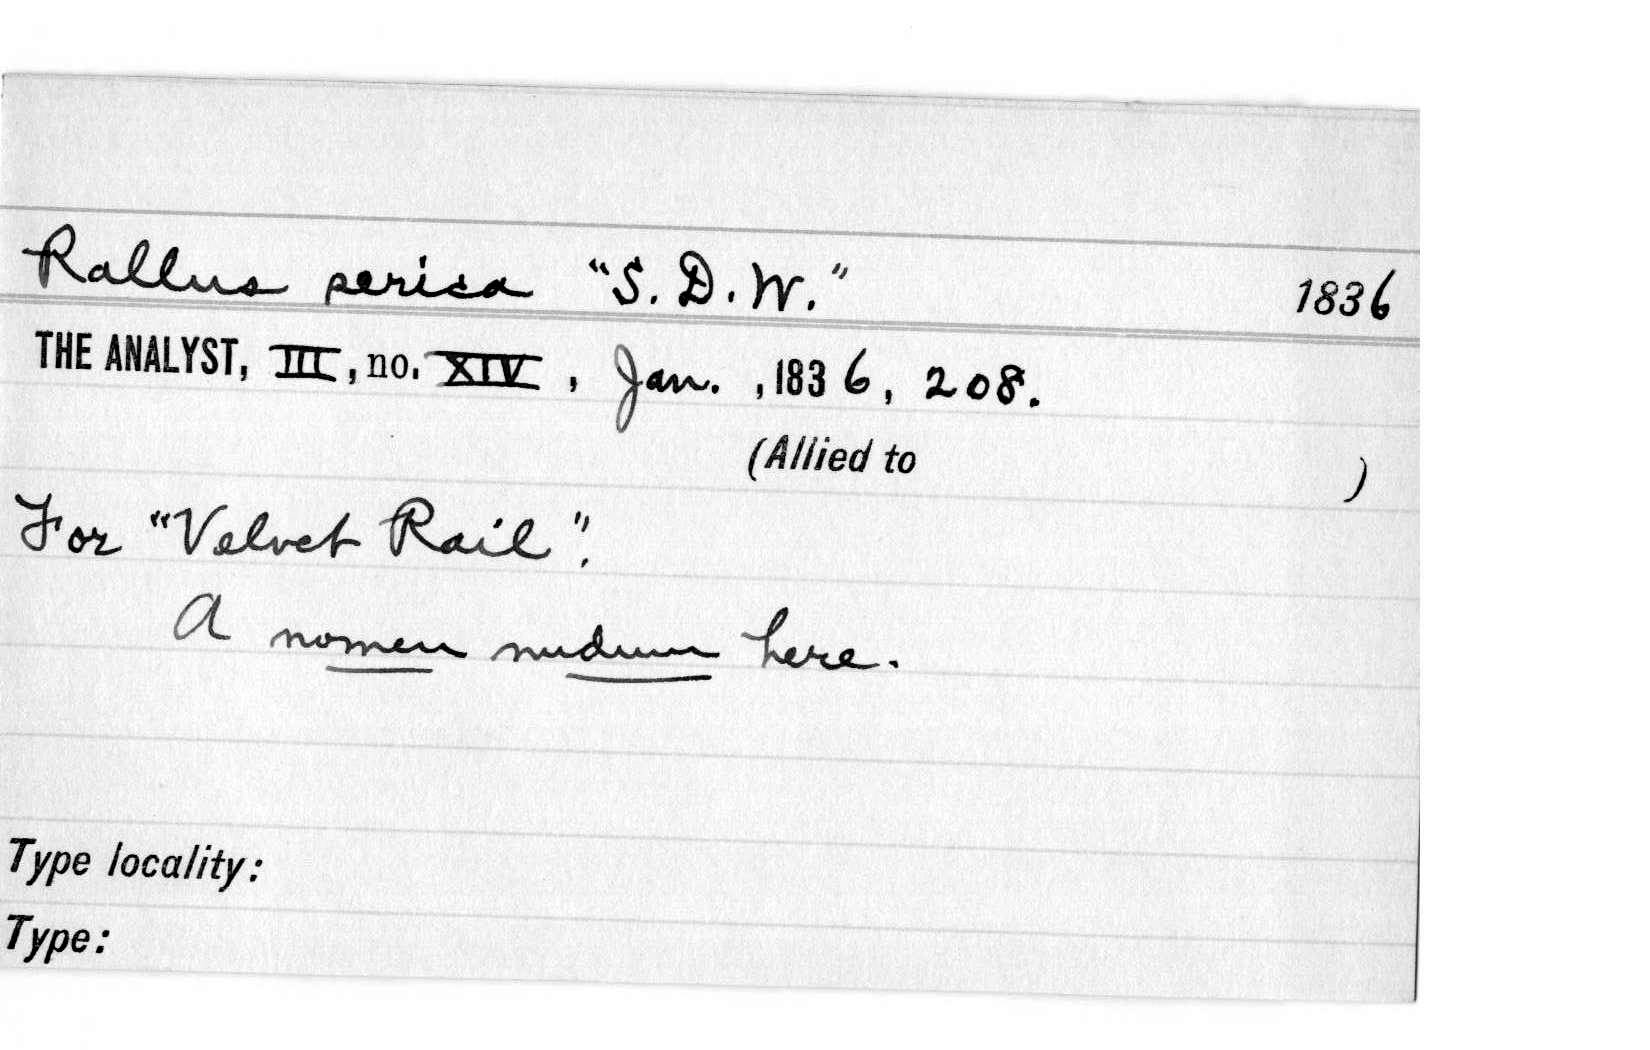 Rallus serica "S. D. W." 1836
THE ANALYST, III, no. XIV, Jan. , 1836, 208.
(Allied to )
For "Velvet Rail".
A nomen nudum here.
Type locality:
Type: